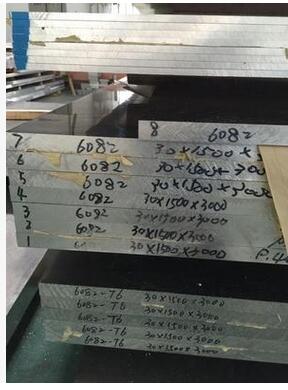 8 6082
7 6082 30×1500×3
6 6082 30×1500×300
5 6082 30×1500×3000
4 6082 30×1500×3000
3 6082 30×1500×3000
2 6082 30×1500×3000
1 30×1500×3000
6082-T6 30×1500×3000
6082-T6 30×1500×3000
6082-T6 30×1500×3000
6082-T6 30×1500×3000
6082-T6 30×1500×3000